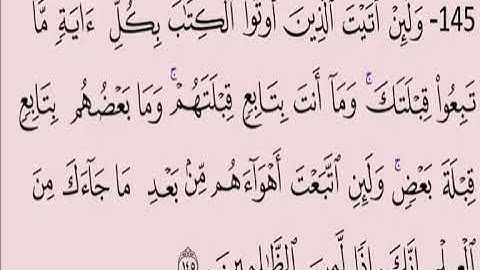 145- وَلَئِنْ أَتَيْتَ ٱلَّذِينَ أُوتُوا۟ ٱلْكِتَٰبَ بِكُلِّ ءَايَةٍ مَّا
تَبِعُوا۟ قِبْلَتَكَ ۚ وَمَآ أَنتَ بِتَابِعٍ قِبْلَتَهُمْ ۚ وَمَا بَعْضُهُم بِتَابِعٍ
قِبْلَةَ بَعْضٍ ۚ وَلَئِنِ ٱتَّبَعْتَ أَهْوَآءَهُم مِّنۢ بَعْدِ مَا جَآءَكَ مِنَ
ٱلْعِلْمِ إِنَّكَ إِذًا لَّمِنَ ٱلظَّالِمِينَ ١٤٥